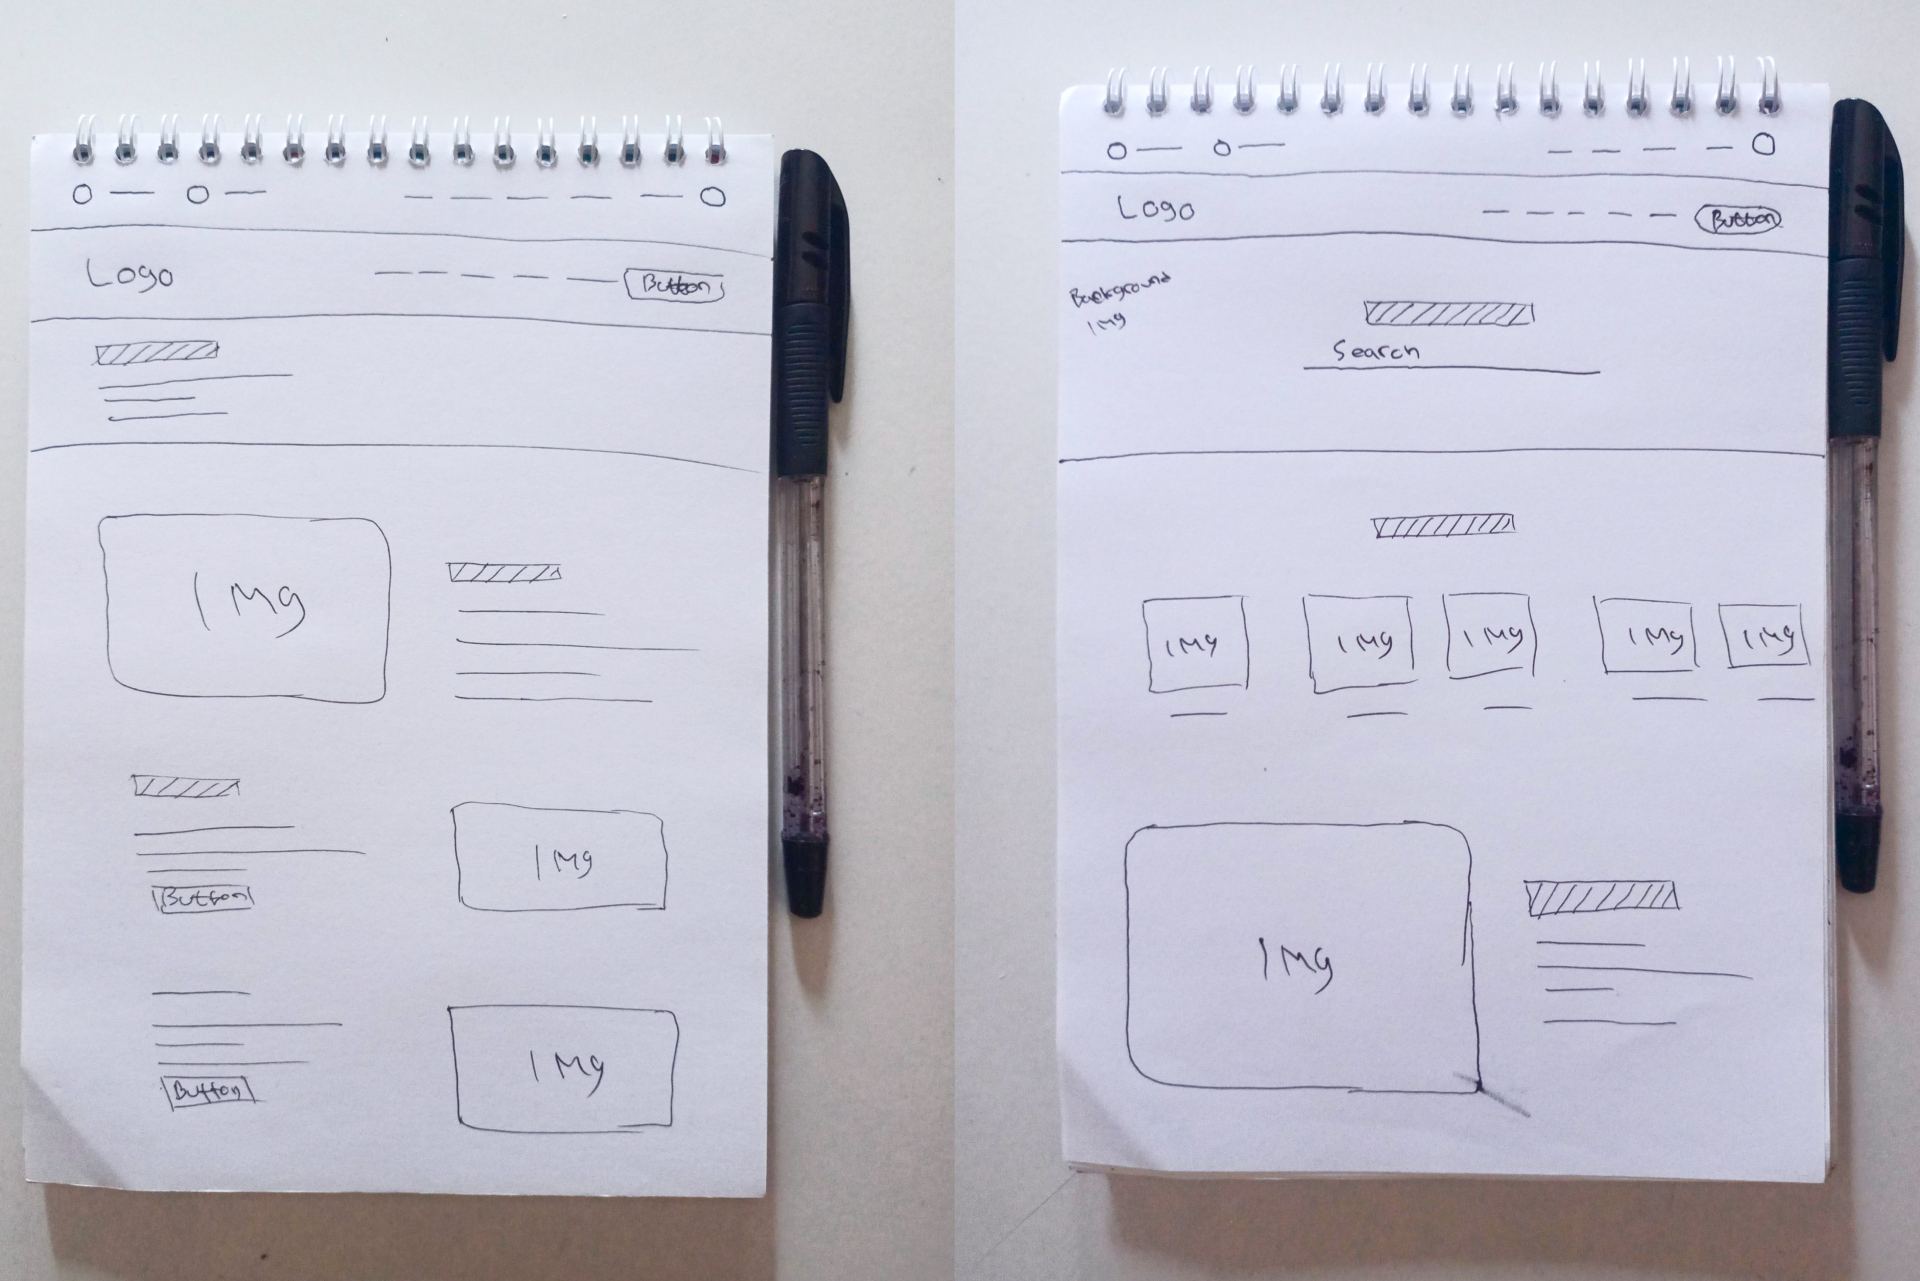 Logo
Button
Img
Img
Button
Img
Button
Logo
Button
Background
Img
Search
Img
Img
Img
Img
Img
Img